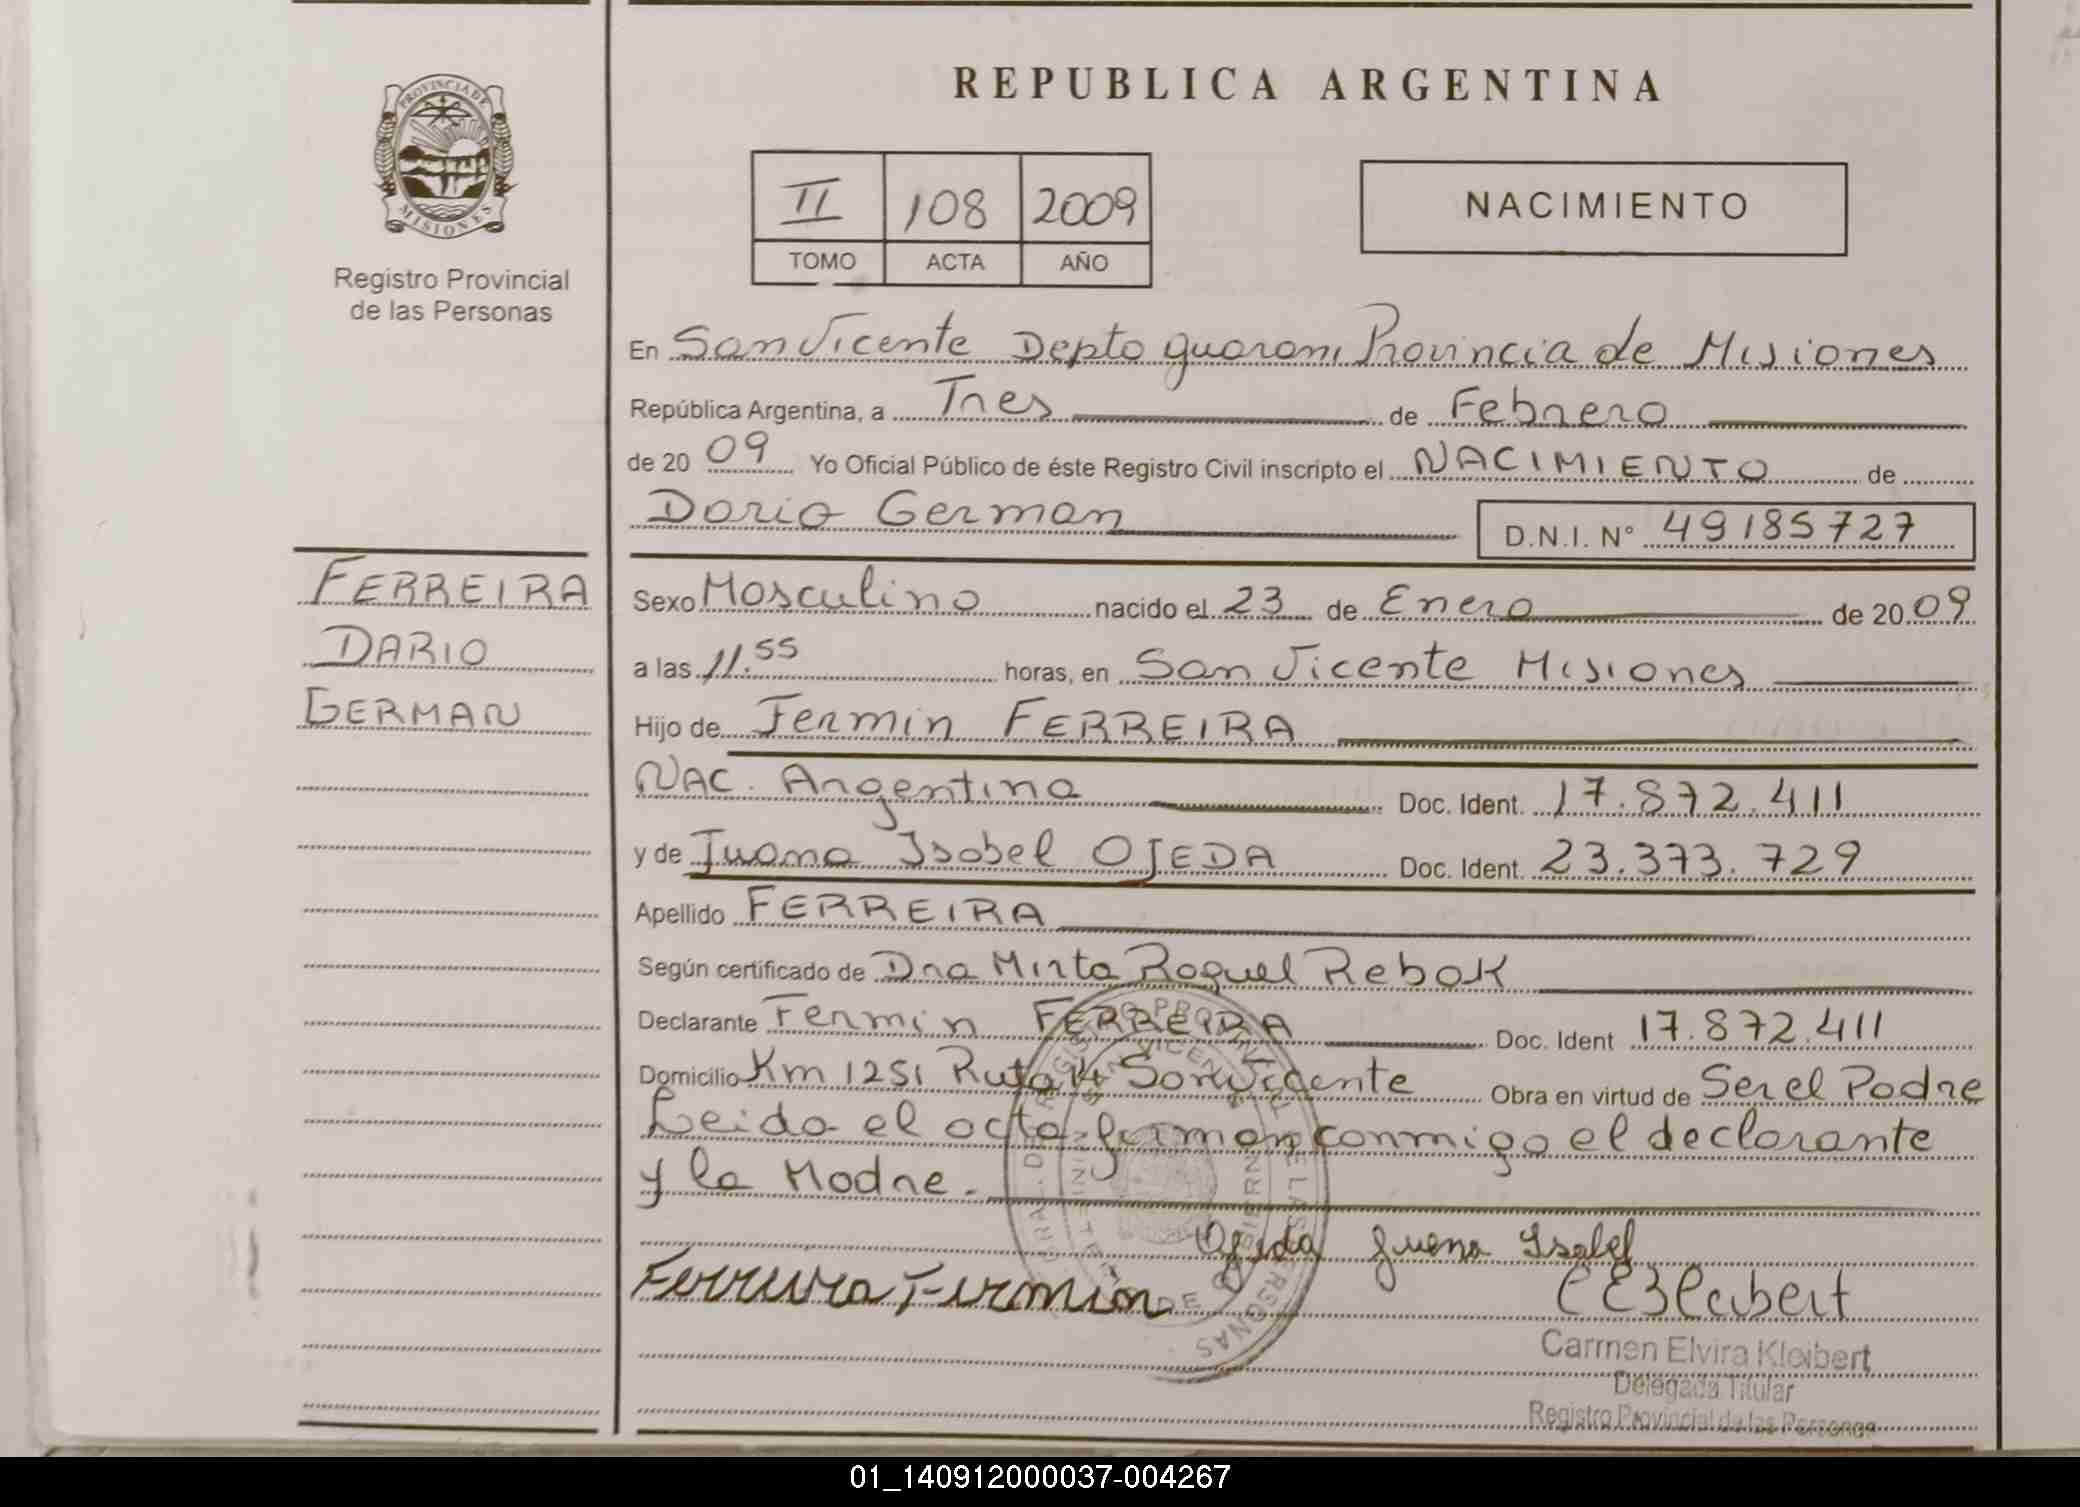 PROVINCIA DE
MISIONES
Registro Provincial
de las Personas
REPUBLICA ARGENTINA
II 108 2009
TOMO ACTA AÑO
NACIMIENTO
En San Vicente Depto guarani Provincia de Misiones
República Argentina, a Tres de Febrero
de 20 09 Yo Oficial Público de éste Registro Civil inscripto el NACIMIENTO de
Dario German D.N.I. N° 49185727
FERREIRA
DARIO
GERMAN
Sexo Masculino nacido el 23 de Enero de 20 09
a las 11.55 horas, en San Vicente Misiones
Hijo de Fermin FERREIRA
NAC. Argentina Doc. Ident. 17.872.411
y de Juana Isabel OJEDA Doc. Ident. 23.373.729
Apellido FERREIRA
Según certificado de Dra Mirta Raquel Rebok
Declarante Fermin FERREIRA Doc. Ident 17.872.411
Domicilio Km 1251 Ruta 14 San Vicente Obra en virtud de Ser el Padre
Leida el acta firman conmigo el declarante
y la Madre.
Ojeda Juana Isabel
Ferreira Fermin
CEKleibert
Carmen Elvira Kleibert
Delegada Titular
Registro Provincial de las Personas
01_140912000037-004267